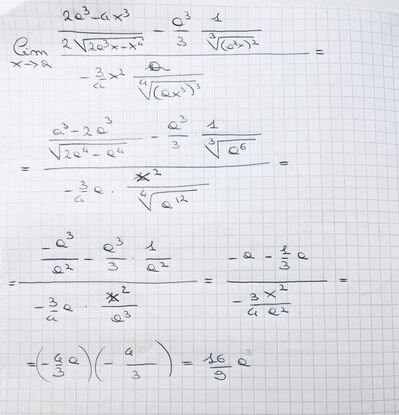 lim x→a (2a³-4x³ / 2√(2a³x-x⁴) - a³/3 · 1/∛(a²x)²) / (-3/4 x² a/∜(ax³)³) =
= (a³-2a³ / √(2a⁴-a⁴) - a³/3 · 1/∛a⁶) / (-3/4 a · x²/∜a¹²) =
= (-a³/a² - a³/3 · 1/a²) / (-3/4 a · x²/a³) = (-a - 1/3 a) / (-3/4 x²/a²) =
= (-4/3 a)(-4/3) = 16/9 a